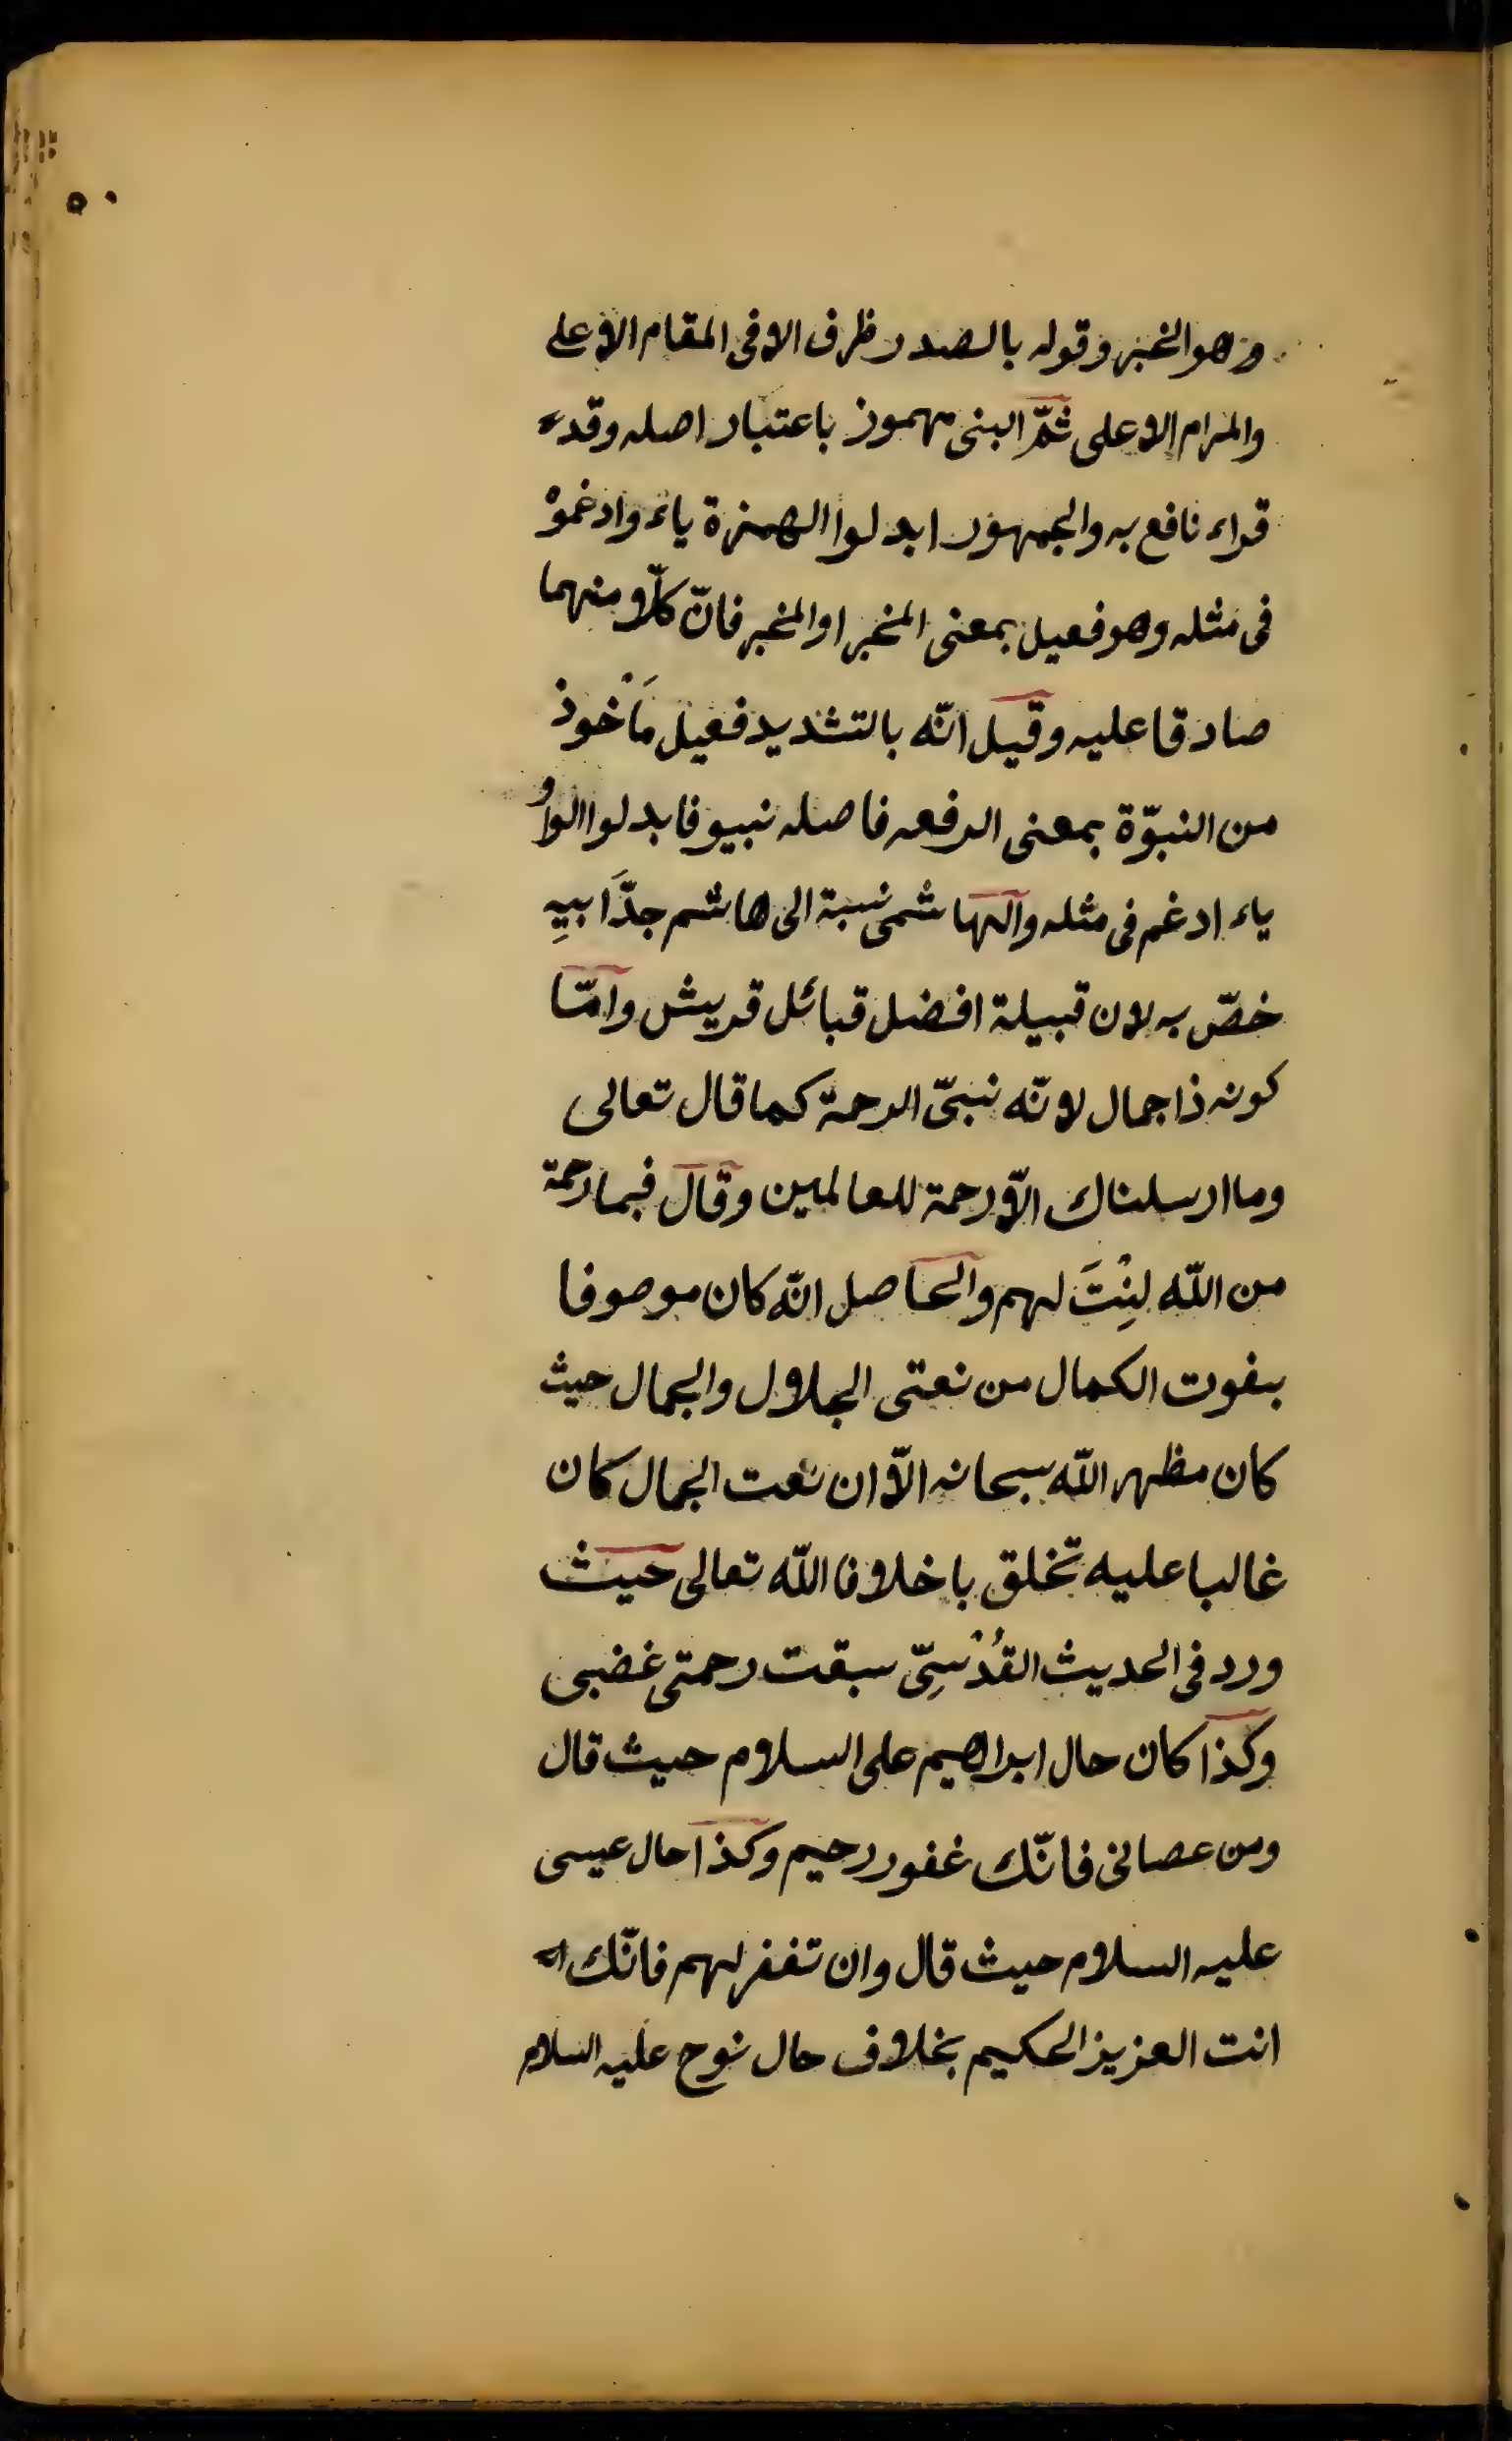 ٥٠
وهو الخبر وقوله بالصدر ظرف الا فى المقام الاعلى
والمرام الاعلى ثمّ النبى مهموز باعتبار اصله وقد
قراء نافع به والجمهور ابدلوا الهمزة ياء وادغموْ
فى مثله وهو فعيل بمعنى المخبر او المخبر فانّ كلّا منهما
صادقا عليه وقيل انّه بالتشديد فعيل مَأْخوذ
من النبوّة بمعنى الرفعه فاصله نبيو فابدلوا الواو
ياء ادغم فى مثله والهاشمى نسبة الى هاشم جدّ اَبيهِ
خصّ به لان قبيلة افضل قبائل قريش وامّا
كونه ذا جمال لانّه نبىّ الرحمة كما قال تعالى
وما ارسلناك الّا رحمة للعالمين وقال فبما رحمة
من اللّه لِنْتَ لهم والحاصل انّه كان موصوفا
بنعوت الكمال من نعتى الجلال والجمال حيث
كان مظهر اللّه سبحانه الّا ان نعت الجمال كان
غالبا عليه تخلق باخلاق اللّه تعالى حيث
ورد فى الحديث القُدْسِىّ سبقت رحمتى غضبى
وكذا كان حال ابراهيم على السلام حيث قال
ومن عصانى فانّك غفور رحيم وكذا حال عيسى
عليه السلام حيث قال وان تغفر لهم فانّك
انت العزيز الحكيم بخلاف حال نوح عليه السلام